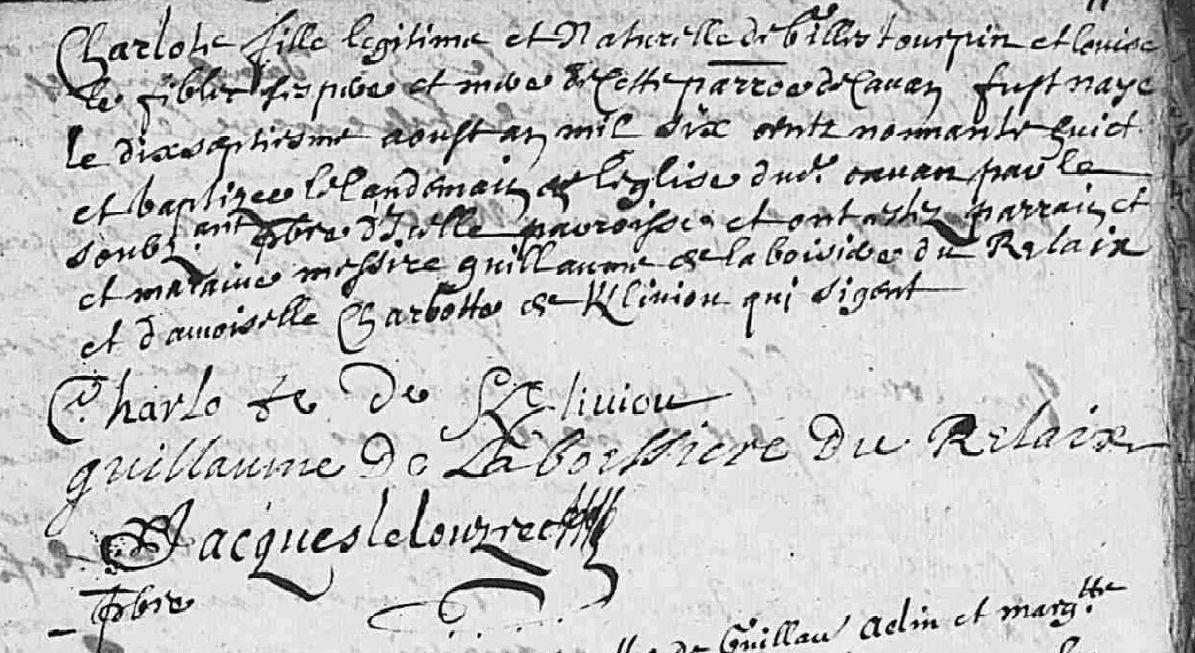 Charlotte fille legitime et Naturelle de Gilles tourpin et louise
le fiblec ses pere et mere de cette parroe de Cavan fust naye
le dixseptiesme aoust an mil six centz nonnante huict
et baptizee le landemain en leglise dud. cavan par le
soubz.ant pbre d'Icelle parroisse et ont estez parrain et
et maraine messire guillaume de la boisiere du Relaix
et damoiselle Charlotte de Kliviou qui signent
Charlote de Kliviou
guillaume de Laboessiere du Relaix
Jacques le louzrec
pbre
de Guillau Aelin et marg.tte